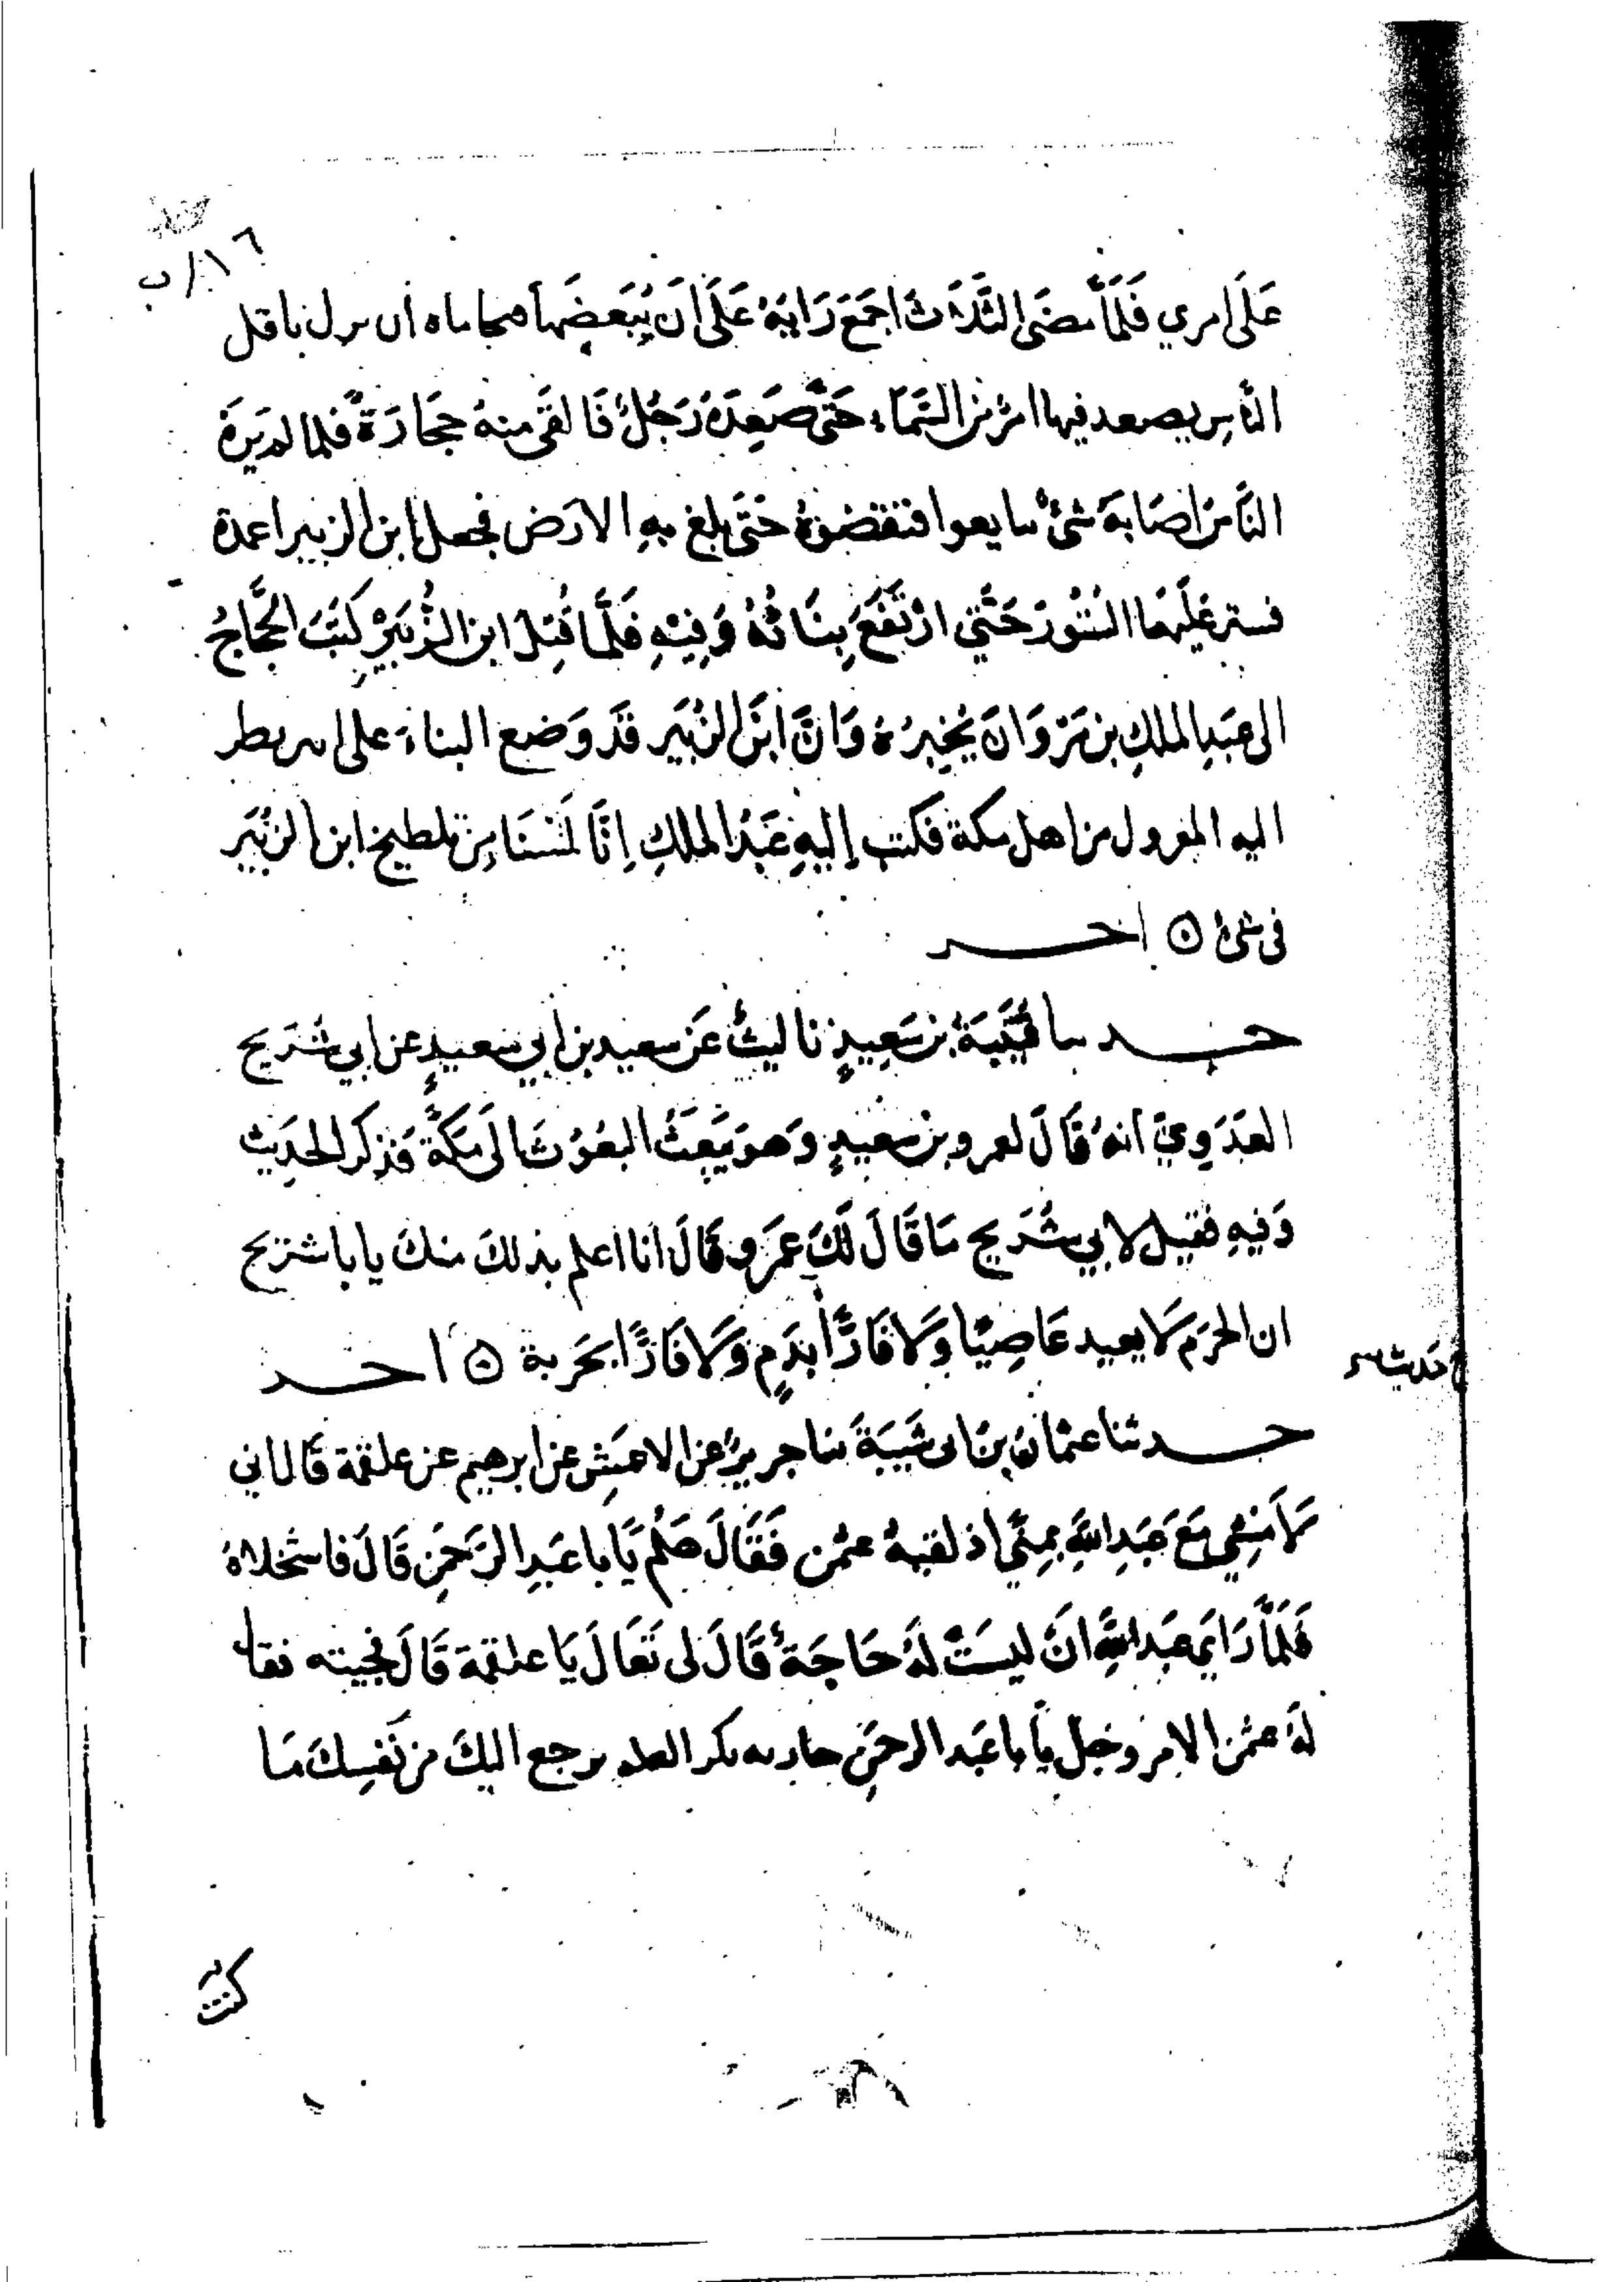 ١٦/ب
عَلَى امري فَلَمَّا مضَى الثَّلَاثَ اجمَعَ رَايَهُ عَلَى انَ يُنَقضَهَا فتحاماه ان ينزل باول
النَّاسِ يصعد فيها امرٌ من السَّمَاء حَتَّى صَعِدَهُ رَجُلٌ فَالقَى منهُ حِجَارَةً فلما لم يَرَهُ
النَّاسُ اصَابَهُ شئٌ تتايعوا فنقضوهُ حَتَى بلغ بِهِ الارَض فجعل ابن الزبير اعمدة
فستر عَلَيهَا السُتُورَ حَتَّي ارْتَفَعَ بِنَائُهُ وَفِيْهِ فَلَمَّا قُتِلَ ابن الزُّبَيْرِ كَتَبَ الحَّجاجُ
الى عَبدِ الملكِ بن مَرْوَانَ يُخبِرُهُ وَانَّ ابَن الزُبَير قَد وَضع البناءَ على اس نظر
اليه العدول من اهل مكة فكتب إليهِ عَبدُ الملكِ اِنَّا لَسْنَا مِن تلطيخ ابن الزُبَير
فى شئٍ ⊙ اخــر
حــدثنا قُتَيبَةُ بن سَعِيدٍ نا ليثٌ عَن سعيد بن أبي سعيدٍ عن ابي شُرَيح
العَدَوِيّ انهُ قَالَ لعمرو بن سعيدٍ وَهو يَبعَثُ البعُوثَ الَى مَكَّةَ فَذكر الحَدِيث
وَفيهِ فقيل لابي شُرَيحٍ مَا قَالَ لَكَ عَمرو قَالَ انا اعلم بذلكَ منكَ يا با شريح
ان الحرَمَ لَا يعيد عَاصِيًا وَلَا فَارًّا بدَمٍ وَلَا فَارًّا بخَربة ⊙ اخــر
حــدثنا عثمانُ بنُ ابى شَيبَةَ نا جريرٌ عن الاعمَشِ عن ابرهيم عن علقمة قَال اني
لَامَشِي مَعَ عَبدِ اللَّهِ بمِنًى اذ لقيهُ عثمن فَقَالَ هَلُم يَا با عَبدِ الرَحمَنِ قَالَ فاستخلاهُ
فَلَمَّا رَاي عَبد اللَّهِ انَ ليسَتْ لَهُ حَاجَةٌ قَالَ لى تَعَالَ يَا علقمة قَالَ فجيته فقال
لهُ عثمن الا نزوجك يا با عَبد الرحمَنِ جاريه بكر العله يرجع اليكَ من نَفسِكَ مَا
كنت